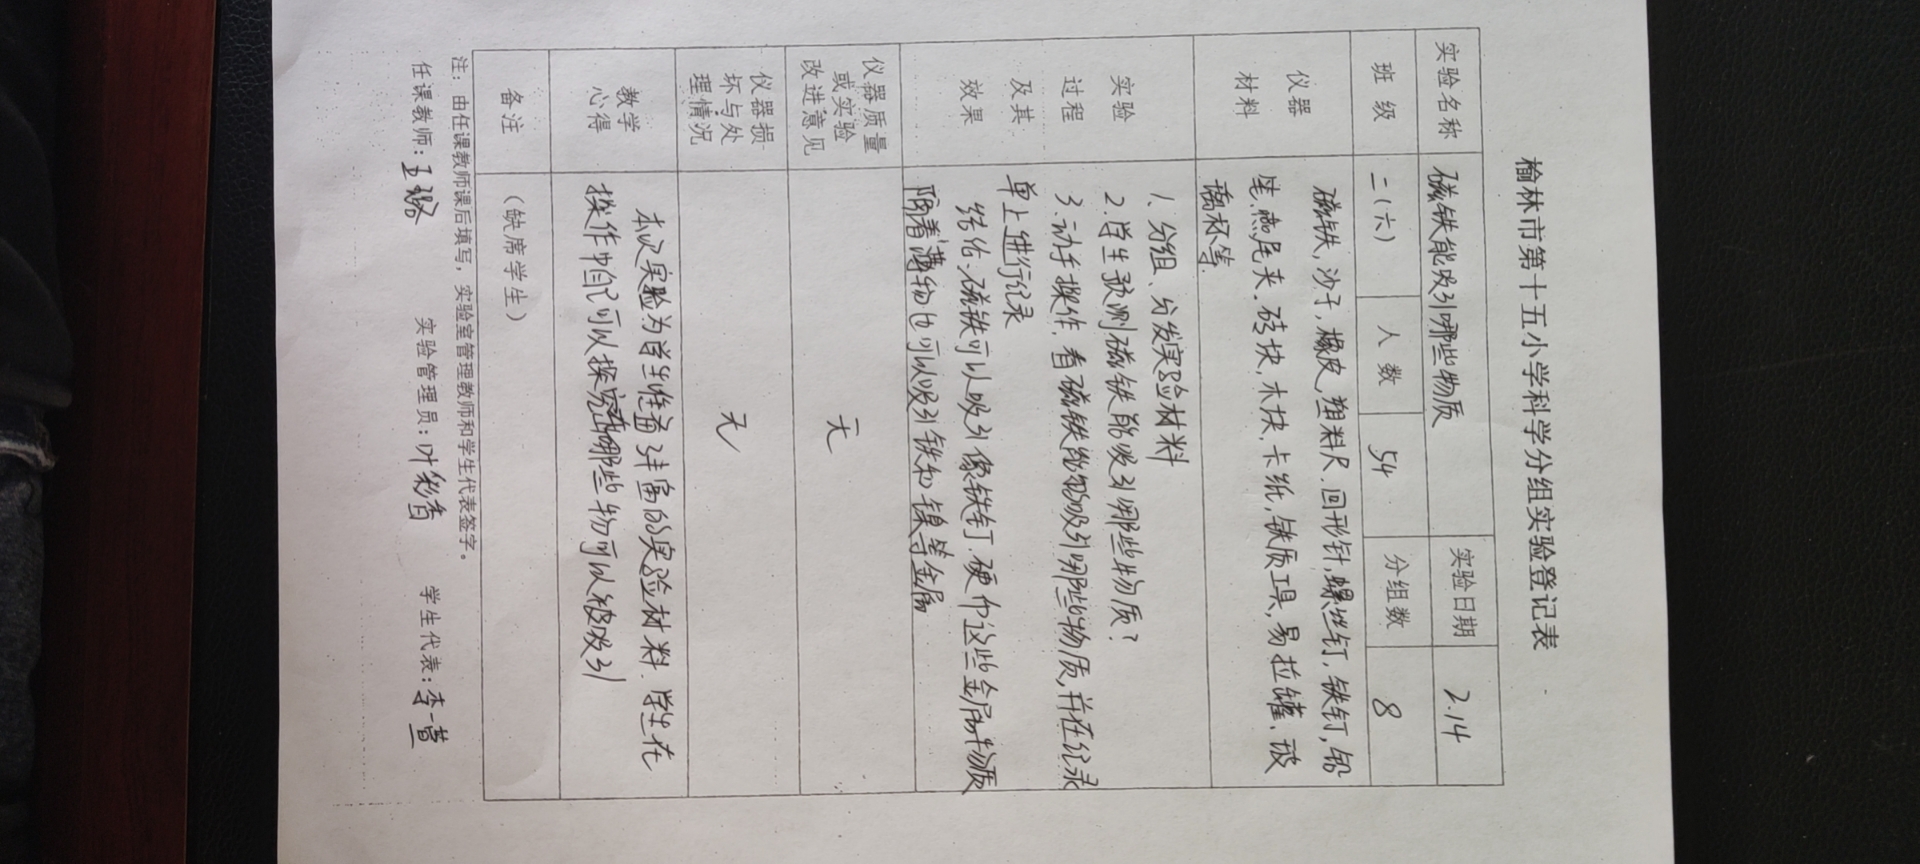 榆林市第十五小学科学分组实验登记表
实验名称 磁铁能吸引哪些物质 实验日期 2.14
班级 二(六) 人数 54 分组数 8
仪器
材料
磁铁,沙子,橡皮,塑料尺,回形针,螺丝钉,铁钉,铅
笔,燕尾夹,砖块,木块,卡纸,铁质工具,易拉罐,玻
璃杯等.
实验
过程
及其
效果
1、分组、分发实验材料
2.学生预测磁铁能吸引哪些物质?
3.动手操作,看磁铁能够吸引哪些物质,并在纪录
单上进行纪录
结论:磁铁可以吸引像铁钉.硬币这些金属物质
隔着薄物也可以吸引铁和镍等金属
仪器质量
或实验
改进意见
无
仪器损
坏与处
理情况
无
教学
心得
本次实验为学生准备丰富的实验材料.学生在
操作中自己可以探究出哪些物可以被吸引
备注 (缺席学生)
注:由任课教师课后填写,实验室管理教师和学生代表签字。
任课教师:王璐 实验管理员:叶彩香 学生代表:李萱